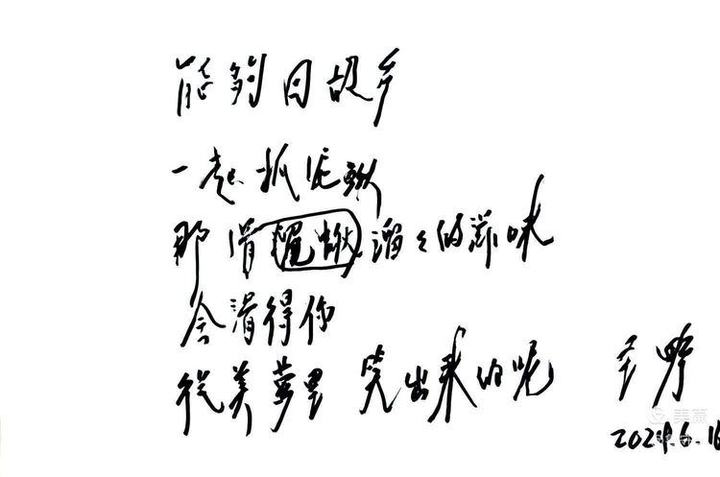 能够回故乡
一起抓泥鳅
那滑溜々的滋味
会滑得你
从美梦里 笑出来的呢
野
2024.6.16
美篇